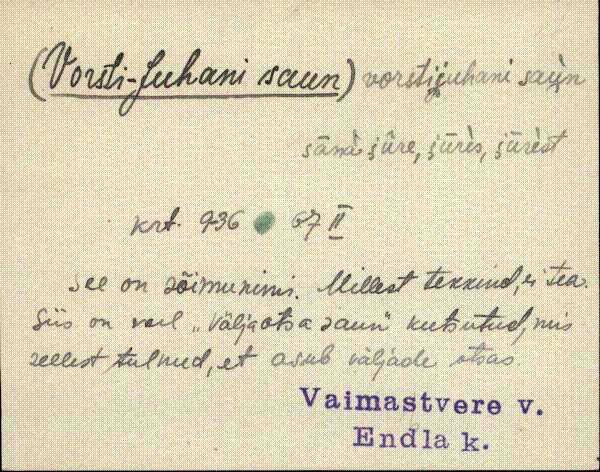 (Vorsti-Juhani saun) vorstijuhani saun
sānà jūre, jūrès, jūrèst
krt. 936 67 II
See on sõimunimi. Millest tekkind, ei tea.
Siis on veel „Väljaotsa saun" kutsutud, mis
sellest tulnud, et asub väljade otsas
Vaimastvere v.
Endla k.